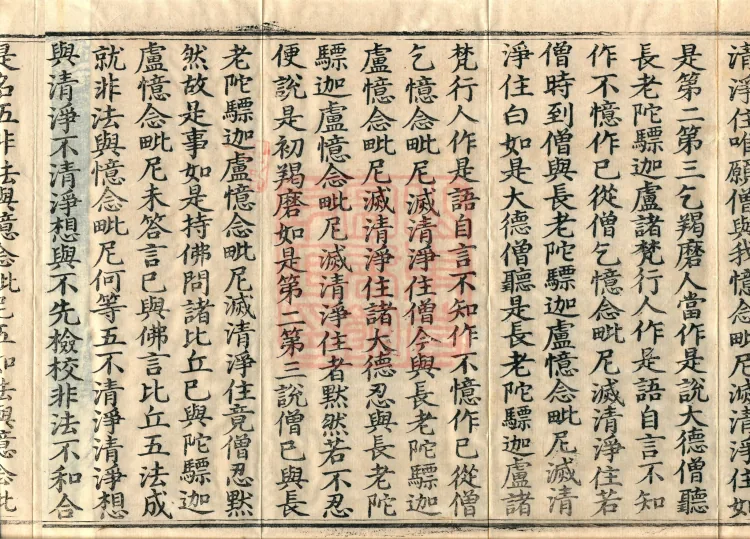 清淨住唯願僧與我憶念毗尼滅清淨住如
是第二第三乞羯磨人當作是說大德僧聽
長老陀驃迦盧諸梵行人作是語自言不知
作不憶作已從僧乞憶念毗尼滅清淨住若
僧時到僧與長老陀驃迦盧憶念毗尼滅清
淨住白如是大德僧聽是長老陀驃迦盧諸
梵行人作是語自言不知作不憶作已從僧
乞憶念毗尼滅清淨住僧今與長老陀驃迦
盧憶念毗尼滅清淨住諸大德忍與長老陀
驃迦盧憶念毗尼滅清淨住者默然若不忍
便說是初羯磨如是第二第三說僧已與長
老陀驃迦盧憶念毗尼滅清淨住竟僧忍默
然故是事如是持佛問諸比丘已與陀驃迦
盧憶念毗尼未答言已與佛言比丘五法成
就非法與憶念毗尼何等五不清淨清淨想
與清淨不清淨想與不先檢校非法不和合
是名五非法與憶念毗尼五如法與憶念毗